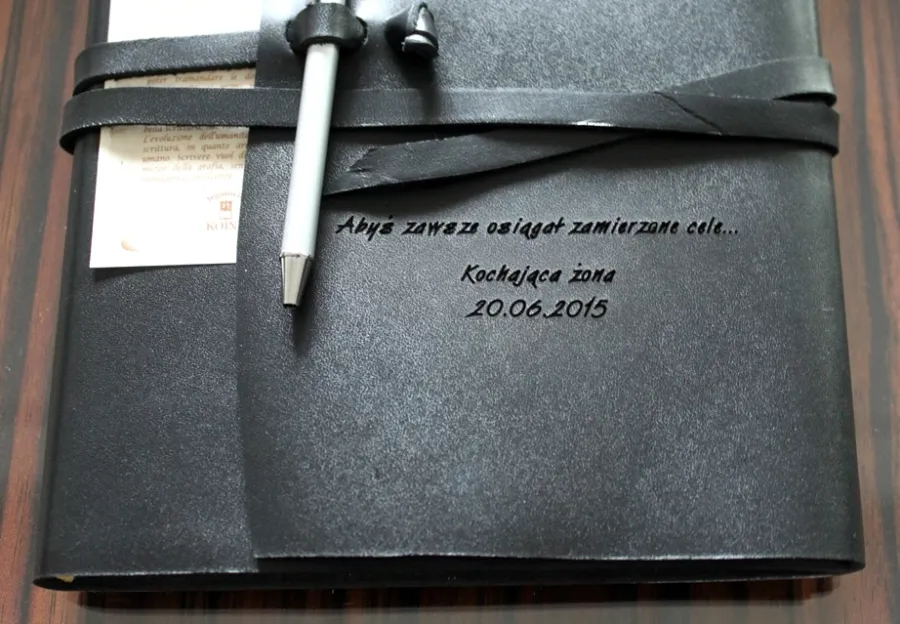 poter tramandare le
L'evoluzione dell'umanità
scrittura, in quanto
umano. Scrivere vuol
KOIN
Abyś zawsze osiągał zamierzone cele...
Kochająca żona
20.06.2015